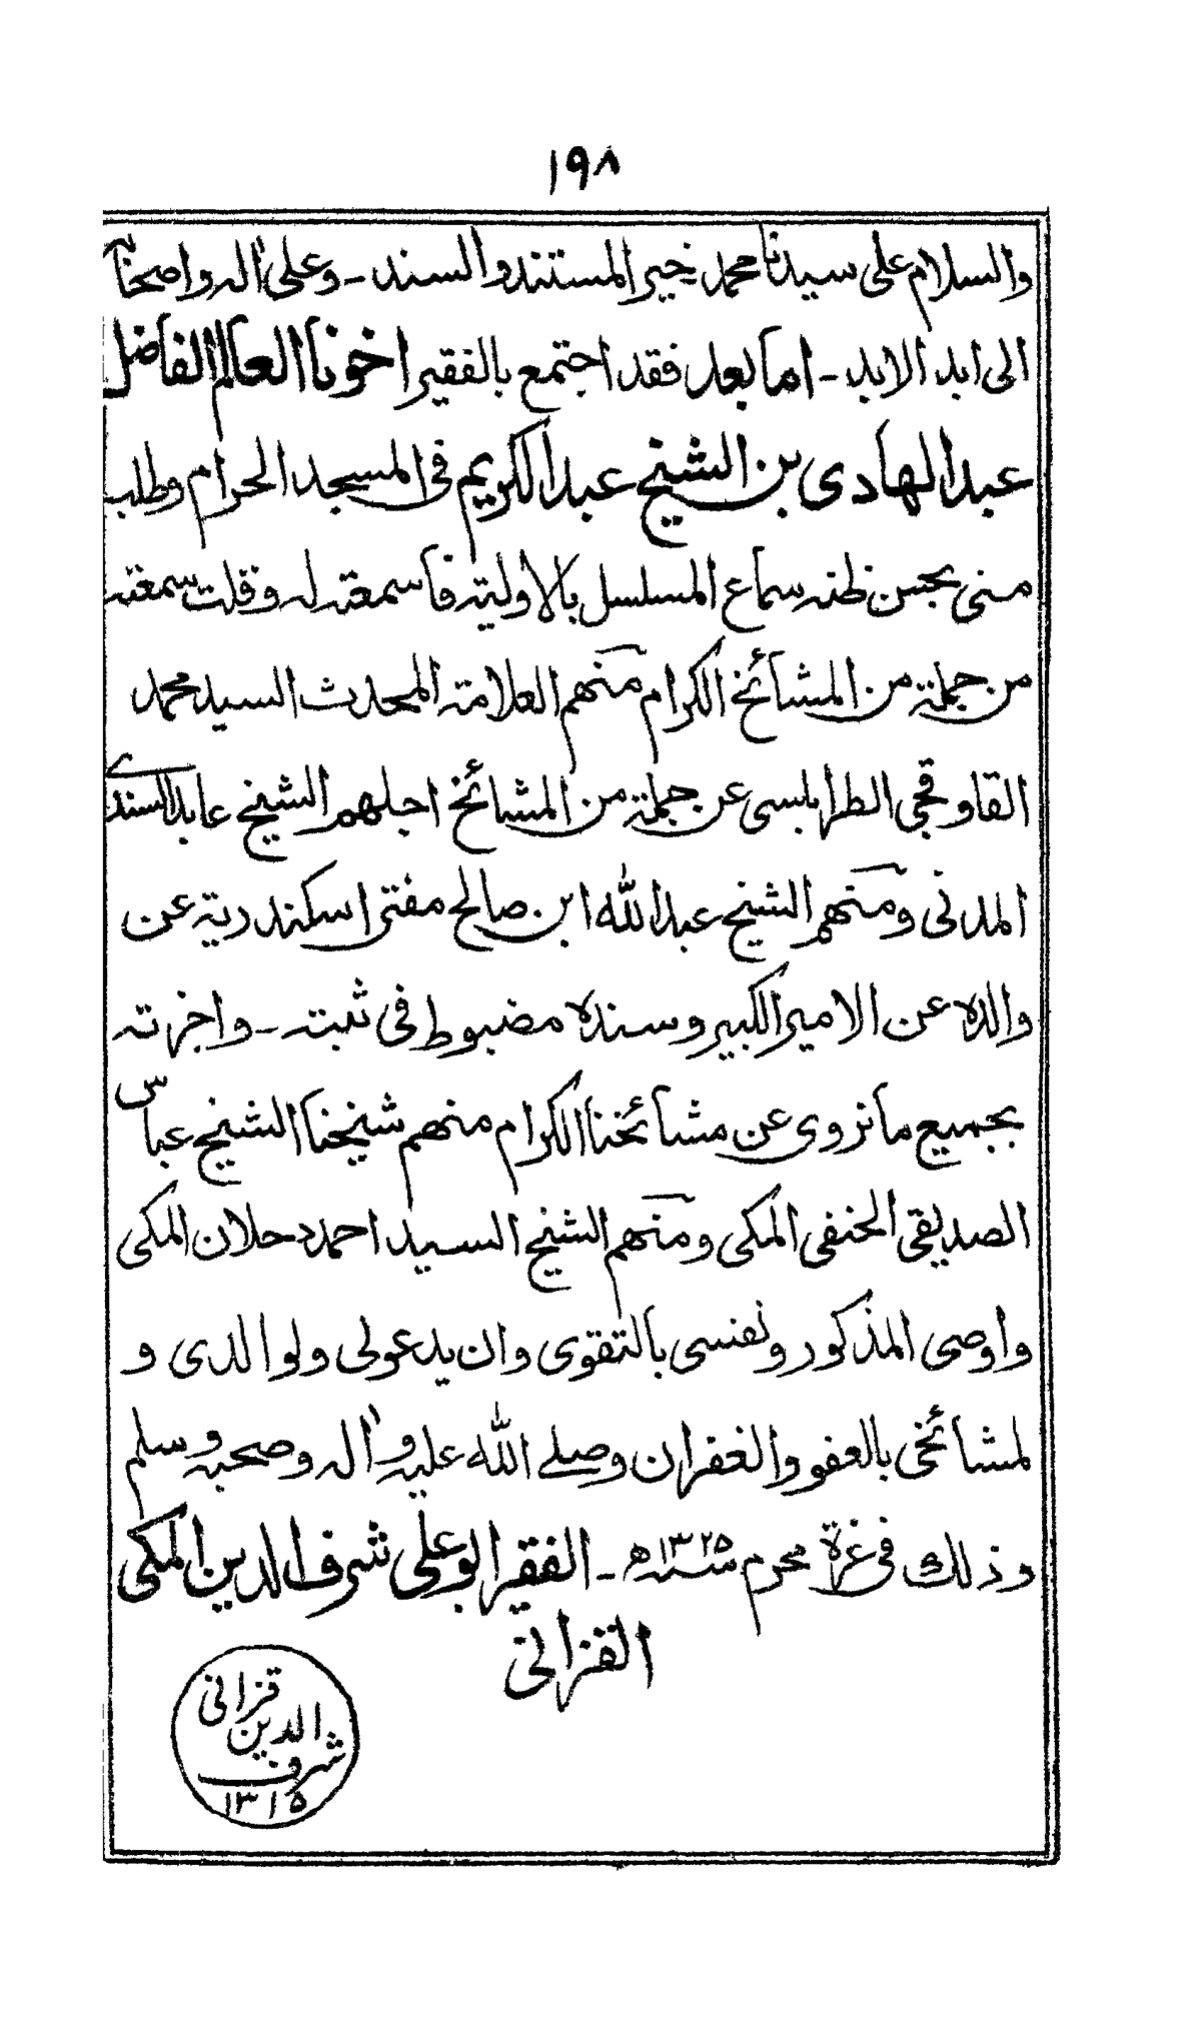 ١٩٨
والسلام على سيدنا محمد خير المستند والسند ـ وعلى اٰله واصحابه
الى ابد الابد ـ اما بعد فقد اجتمع بالفقير اخونا العالم الفاضل
عبد الهادى بن الشيخ عبد الكريم فى المسجد الحرام وطلب
منى بحسن ظنه سماع المسلسل بالاولية فاسمعته له وقلت سمعته
من جملة من المشائخ الكرام منهم العلامة المحدث السيد محمد
القاوقجى الطرابلسى عن جملة من المشائخ اجلهم الشيخ عابد السندى
المدنى ومنهم الشيخ عبد الله ابن صالح مفتى اسكندرية عن
والده عن الامير الكبير وسنده مضبوط فى ثبته ـ واجزته
بجميع ما نروى عن مشائخنا الكرام منهم شيخنا الشيخ عباس
الصديقى الحنفى المكى ومنهم الشيخ السيد احمد دحلان المكى
واوصى المذكور ونفسى بالتقوى وان يدعو لى ولوالدى و
لمشائخى بالعفو والغفران وصلے الله عليه واٰله وصحبه وسلم
وذلك فى غرة محرم سنه ١٣٢٥ه ـ الفقير ابو على شرف الدين المكى
القزانى
قزانى
الدين
شرف
١٣١٥